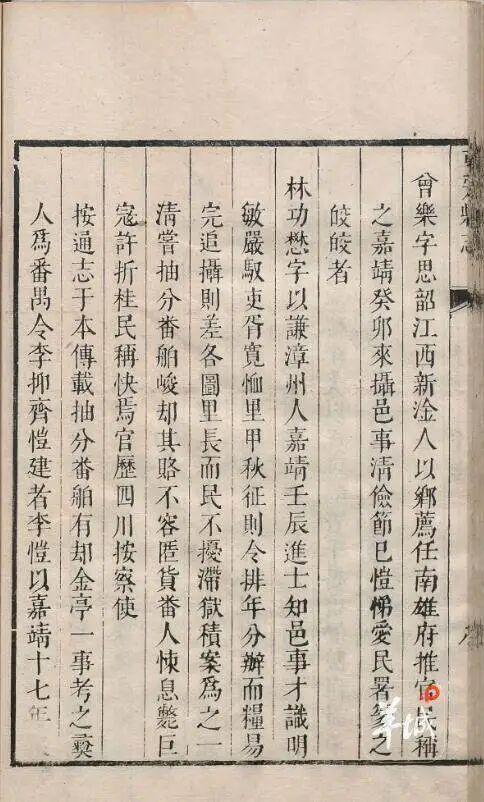 曾樂字思韶江西新淦人以鄉薦任南雄府推官民稱
之嘉靖癸卯來攝邑事清儉節已愷悌愛民署篆之
皎皎者
林功懋字以謙漳州人嘉靖壬辰進士知邑事才識明
敏嚴馭吏胥寬恤里甲秋征則令排年分辦而糧易
完追攝則差各圖里長而民不擾滯獄積案為之一
清嘗抽分番舶峻却其賂不容匿貨番人悚息斃巨
寇許折桂民稱快焉官歷四川按察使
按通志于本傳載抽分番舶有却金亭一事考之
人為番禺令李抑齊愷建者李愷以嘉靖十七年
羊城